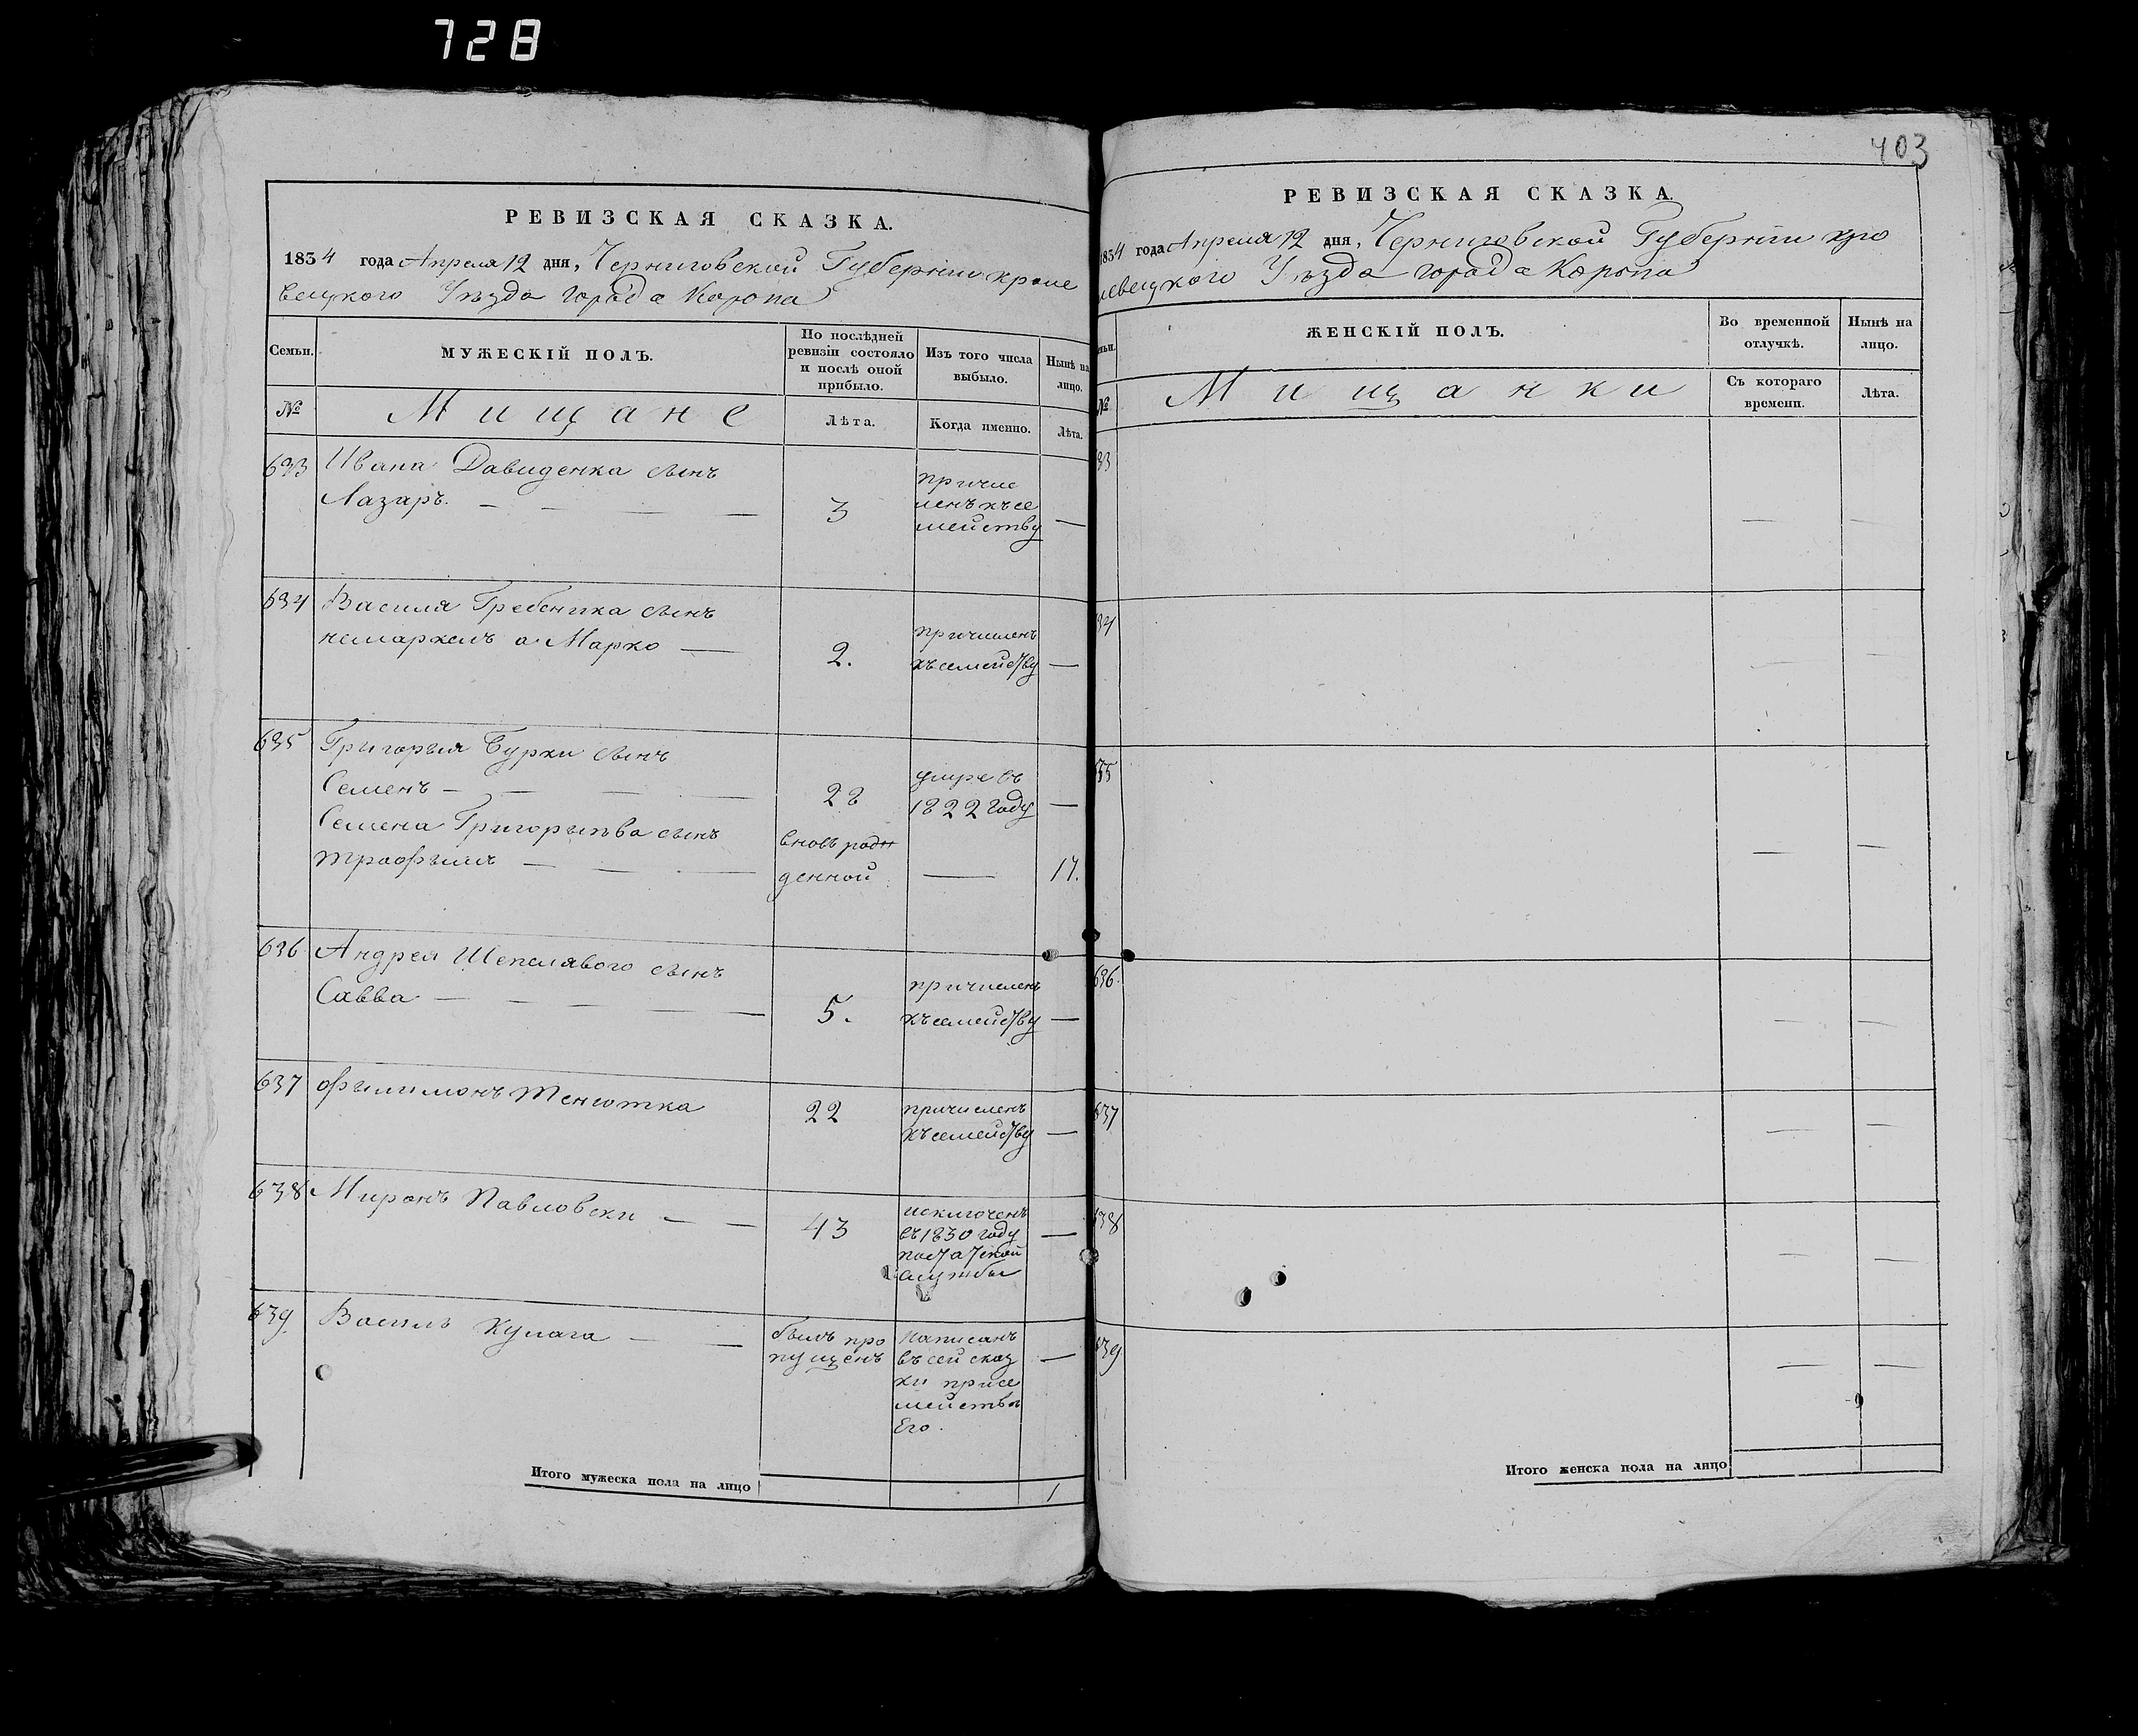 728
РЕВИЗСКАЯ СКАЗКА.
1834 года Апреля 12 дня, Черниговской Губернiи кроле
вецкого Уѣзда города Коропа
Семьи.
МУЖЕСКIЙ ПОЛЪ.
По послѣдней
ревизiи состояло
и послѣ оной
прибыло.
Изъ того числа
выбыло.
Нынѣ на
лицо.
№
Мищане
Лѣта.
Когда именно.
Лѣта.
633
Ивана Давиденка сынъ
Лазаръ.
3
причис
ленъ къ се
мейству
634
Василя Гребеника сынъ
немаркелъ а Марко
2.
причисленъ
къ семейству
635
Григорыя Бурки сынъ
Семенъ
28
умре въ
1822 году
Семена Григорьева сынъ
трофымъ
вновь рож
денной
17.
636
Андрея Шепелявого сынъ
Савва
5.
причисленъ
къ семейству
637
филимонъ тенютка
22
причисленъ
къ семейству
638
Миронъ Павловски
43
исключенъ
въ 1830 году
по статской
службы
639.
Василь Кулага
былъ про
пущенъ
написанъ
въ сей сказ
ки при се
мейства
Его.
Итого мужеска пола на лицо
1
403
РЕВИЗСКАЯ СКАЗКА.
1834 года Апреля 12 дня, Черниговской Губернiи кро
левецкого Уѣзда города Коропа
ЖЕНСКIЙ ПОЛЪ.
Во временной
отлучкѣ.
Нынѣ на
лицо.
№
Мищанки
Съ котораго
времени.
Лѣта.
33
34
35
636.
637
638
639.
Итого женска пола на лицо